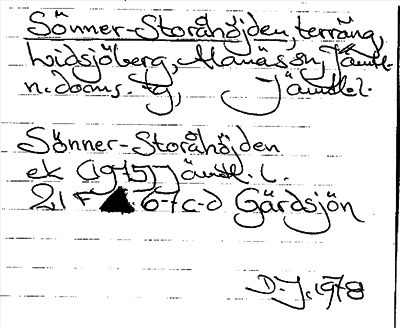 Sönner-Storåhöjden, terräng,
Lidsjöberg, Alanäs sn, Jämtl.
n. doms. tg, Jämtl. l.
Sönner-Storåhöjden
ek (1975) Jämtl. l.
21 F 6-7 c-d Gärdsjön
D.J. 1978